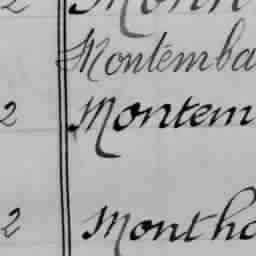 2 Monn
Montemba
2 Montem
2 Montho